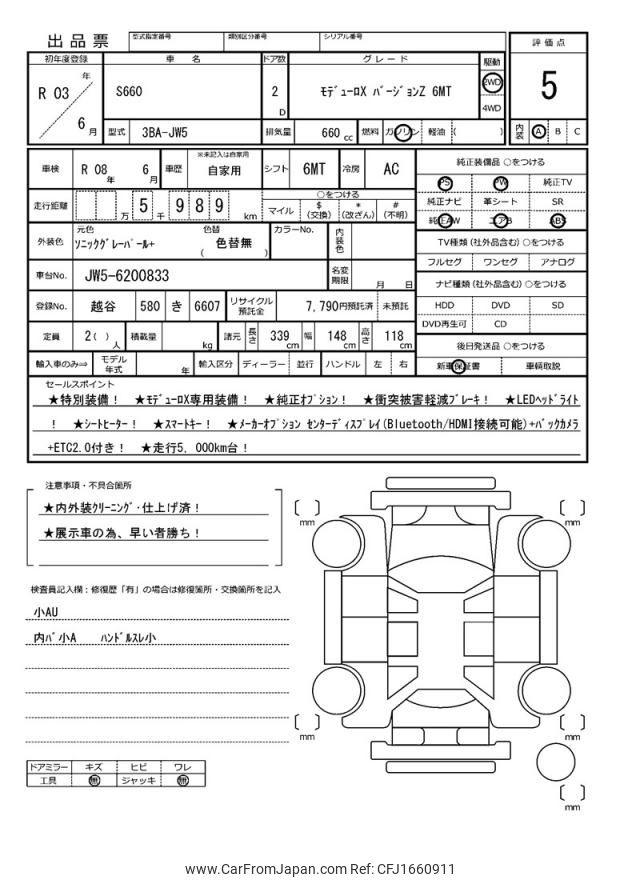 出品票
型式指定番号 類別区分番号 シリアル番号
初年度登録 車名 ドア数 グレード 駆動 評価点
R 03 年 6 月 S660 2 D ﾓﾃﾞｭｰﾛX ﾊﾞｰｼﾞｮﾝZ 6MT 2WD 4WD 5
型式 3BA-JW5 排気量 660 cc 燃料 ガソリン 軽油 ( ) 内装 A B C
車検 R 08 年 6 月 車歴 ※未記入は自家用 自家用 シフト 6MT 冷房 AC
純正装備品 ○をつける
PS PW 純正TV
純正ナビ 革シート SR
純正AW エアB ABS
走行距離 万 5 千 9 8 9 km
○をつける
マイル $ (交換) * (改ざん) # (不明)
外装色 元色 ｿﾆｯｸｸﾞﾚｰﾊﾟｰﾙ+ 色替 ( 色替無 ) カラーNo. 内装色
TV種類 (社外品含む) ○をつける
フルセグ ワンセグ アナログ
車台No. JW5-6200833 名変期限 月 日
ナビ種類 (社外品含む) ○をつける
HDD DVD SD
DVD再生可 CD
登録No. 越谷 580 き 6607 リサイクル預託金 7,790円預託済 未預託
定員 2( ) 人 積載量 kg 諸元 長さ 339 cm 幅 148 cm 高さ 118 cm
後日発送品 ○をつける
新車保証書 車輌取説
輸入車のみ⇒ モデル年式 年 輸入区分 ディーラー 並行 ハンドル 左 右
セールスポイント
★特別装備！ ★ﾓﾃﾞｭｰﾛX専用装備！ ★純正ｵﾌﾟｼｮﾝ！ ★衝突被害軽減ﾌﾞﾚｰｷ！ ★LEDﾍｯﾄﾞﾗｲﾄ
！ ★ｼｰﾄﾋｰﾀｰ！ ★ｽﾏｰﾄｷｰ！ ★ﾒｰｶｰｵﾌﾟｼｮﾝ ｾﾝﾀｰﾃﾞｨｽﾌﾟﾚｲ(Bluetooth/HDMI接続可能)+ﾊﾞｯｸｶﾒﾗ
+ETC2.0付き！ ★走行5，000km台！
注意事項・不具合箇所
★内外装ｸﾘｰﾆﾝｸﾞ･仕上げ済！
★展示車の為、早い者勝ち！
検査員記入欄：修復歴「有」の場合は修復箇所・交換箇所を記入
小AU
内ﾊﾞ小A ﾊﾝﾄﾞﾙｽﾚ小
mm
mm
mm
mm
mm
ドアミラー キズ ヒビ ワレ
工具 無 ジャッキ 無
www.CarFromJapan.com Ref: CFJ1660911